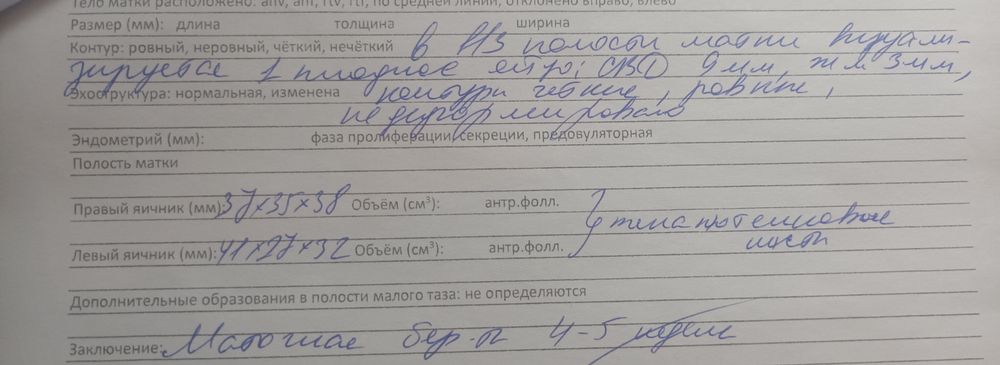 Тело матки расположено: anv, anf, rtv, rtf, по средней линии, отклонено вправо, влево
Размер (мм): длина толщина ширина
Контур: ровный, неровный, чёткий, нечёткий в в/з полости матки визуали-
зируется 1 плодное яйцо, СВД 9 мм, жм 3 мм,
Эхоструктура: нормальная, изменена контуры четкие, ровные,
не деформировано
Эндометрий (мм): фаза пролиферации, секреции, предовуляторная
Полость матки
Правый яичник (мм): 37×35×38 Объём (см³): антр.фолл.
текалютеиновые
Левый яичник (мм): 41×27×32 Объём (см³): антр.фолл.
кисты
Дополнительные образования в полости малого таза: не определяются
Заключение: Маточная бер-ть 4-5 недель